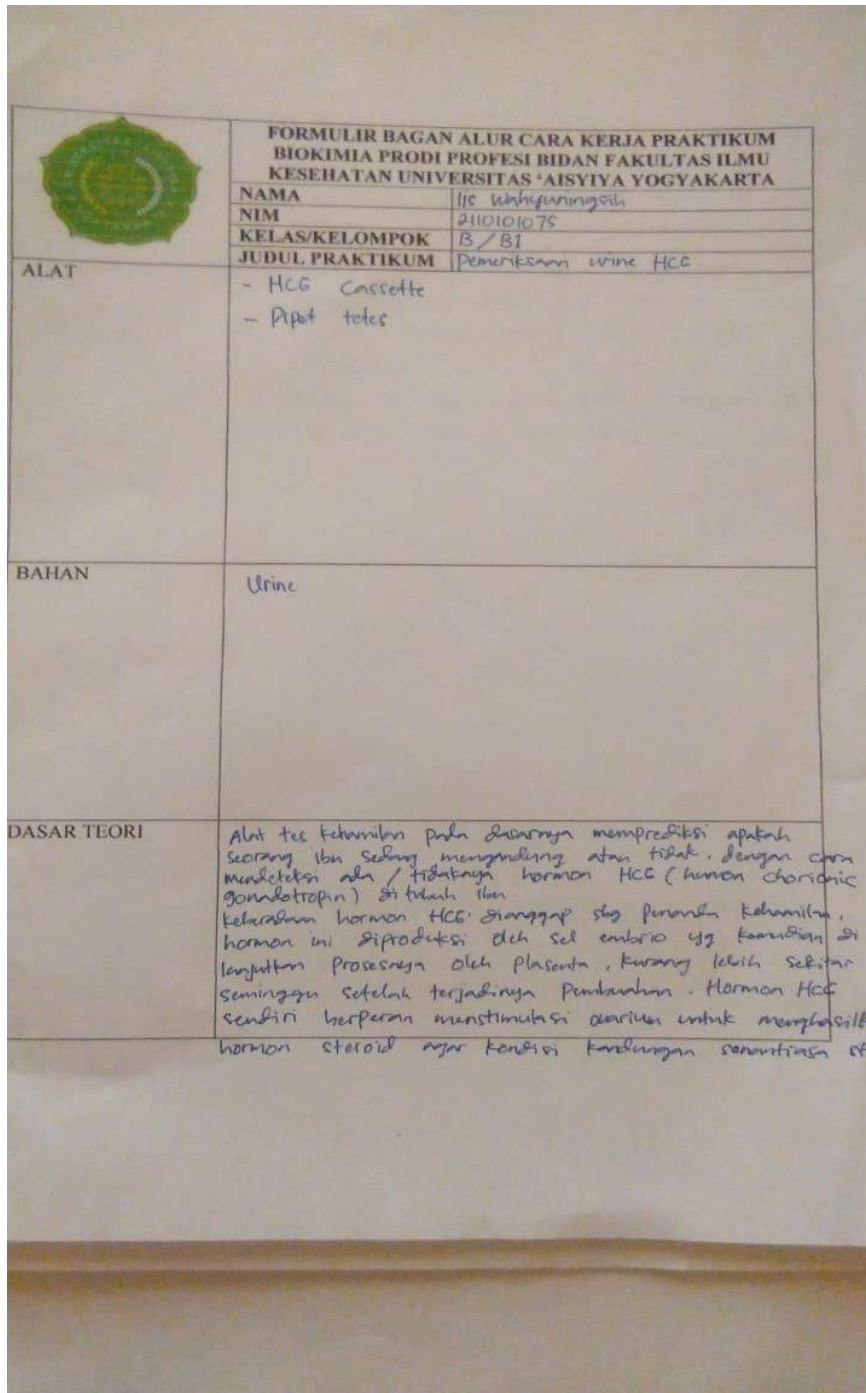 FORMULIR BAGAN ALUR CARA KERJA PRAKTIKUM
BIOKIMIA PRODI PROFESI BIDAN FAKULTAS ILMU
KESEHATAN UNIVERSITAS ‘AISYIYA YOGYAKARTA
NAMA Iis Wahyuningsih
NIM 2110101075
KELAS/KELOMPOK B / B1
JUDUL PRAKTIKUM Pemeriksaan urine HCG
ALAT
- HCG Cassette
- Pipet tetes
BAHAN
Urine
DASAR TEORI
Alat tes kehamilan pada dasarnya memprediksi apakah
seorang ibu sedang mengandung atau tidak. dengan cara
mendeteksi ada / tidaknya hormon HCG (human chorionic
gonadotropin) di tubuh ibu
keberadaan hormon HCG dianggap sbg penanda kehamilan.
hormon ini diproduksi oleh sel embrio yg kemudian di
lanjutkan prosesnya oleh plasenta, kurang lebih sekitar
seminggu setelah terjadinya pembuahan. Hormon HCG
sendiri berperan menstimulasi ovarium untuk
hormon steroid agar kondisi kandungan senantiasa